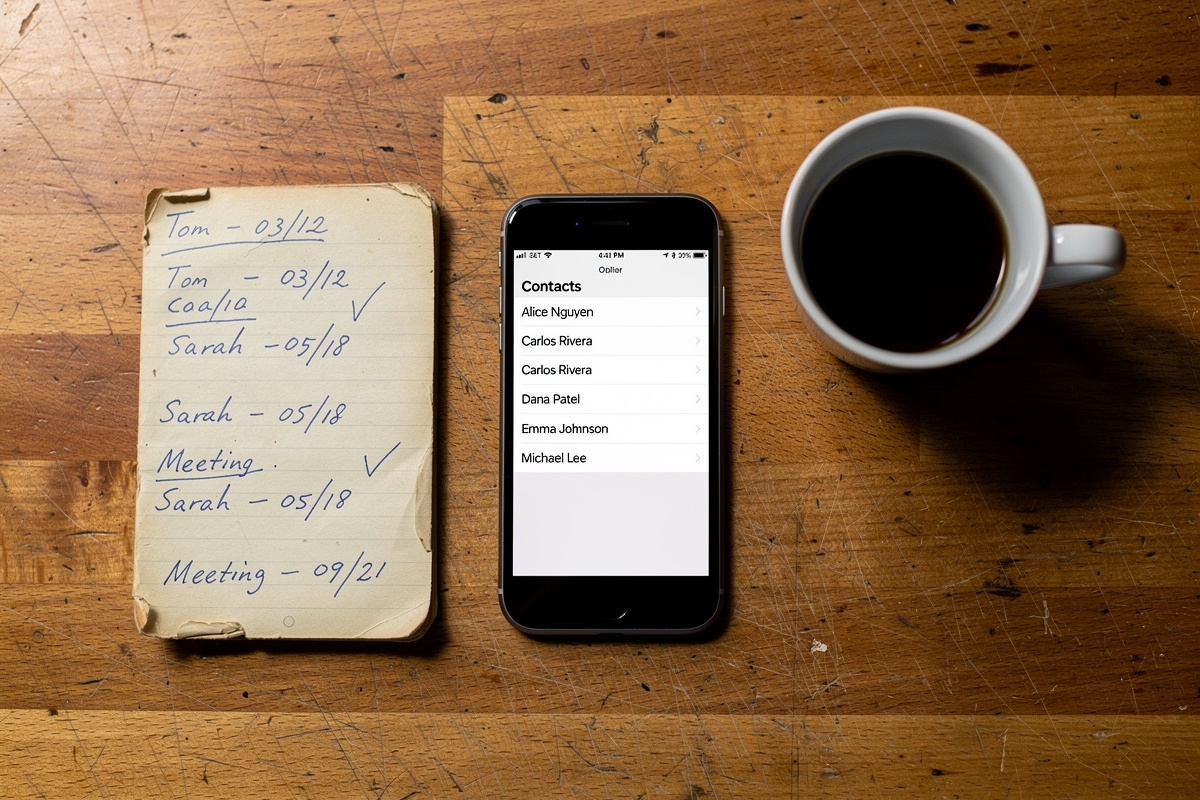 Tom – 03/12
Tom – 03/12
Sarah – 05/18
Sarah – 05/18
Meeting.
Sarah – 05/18
Meeting – 09/21
4:41 PM
Contacts
Alice Nguyen
Carlos Rivera
Carlos Rivera
Dana Patel
Emma Johnson
Michael Lee